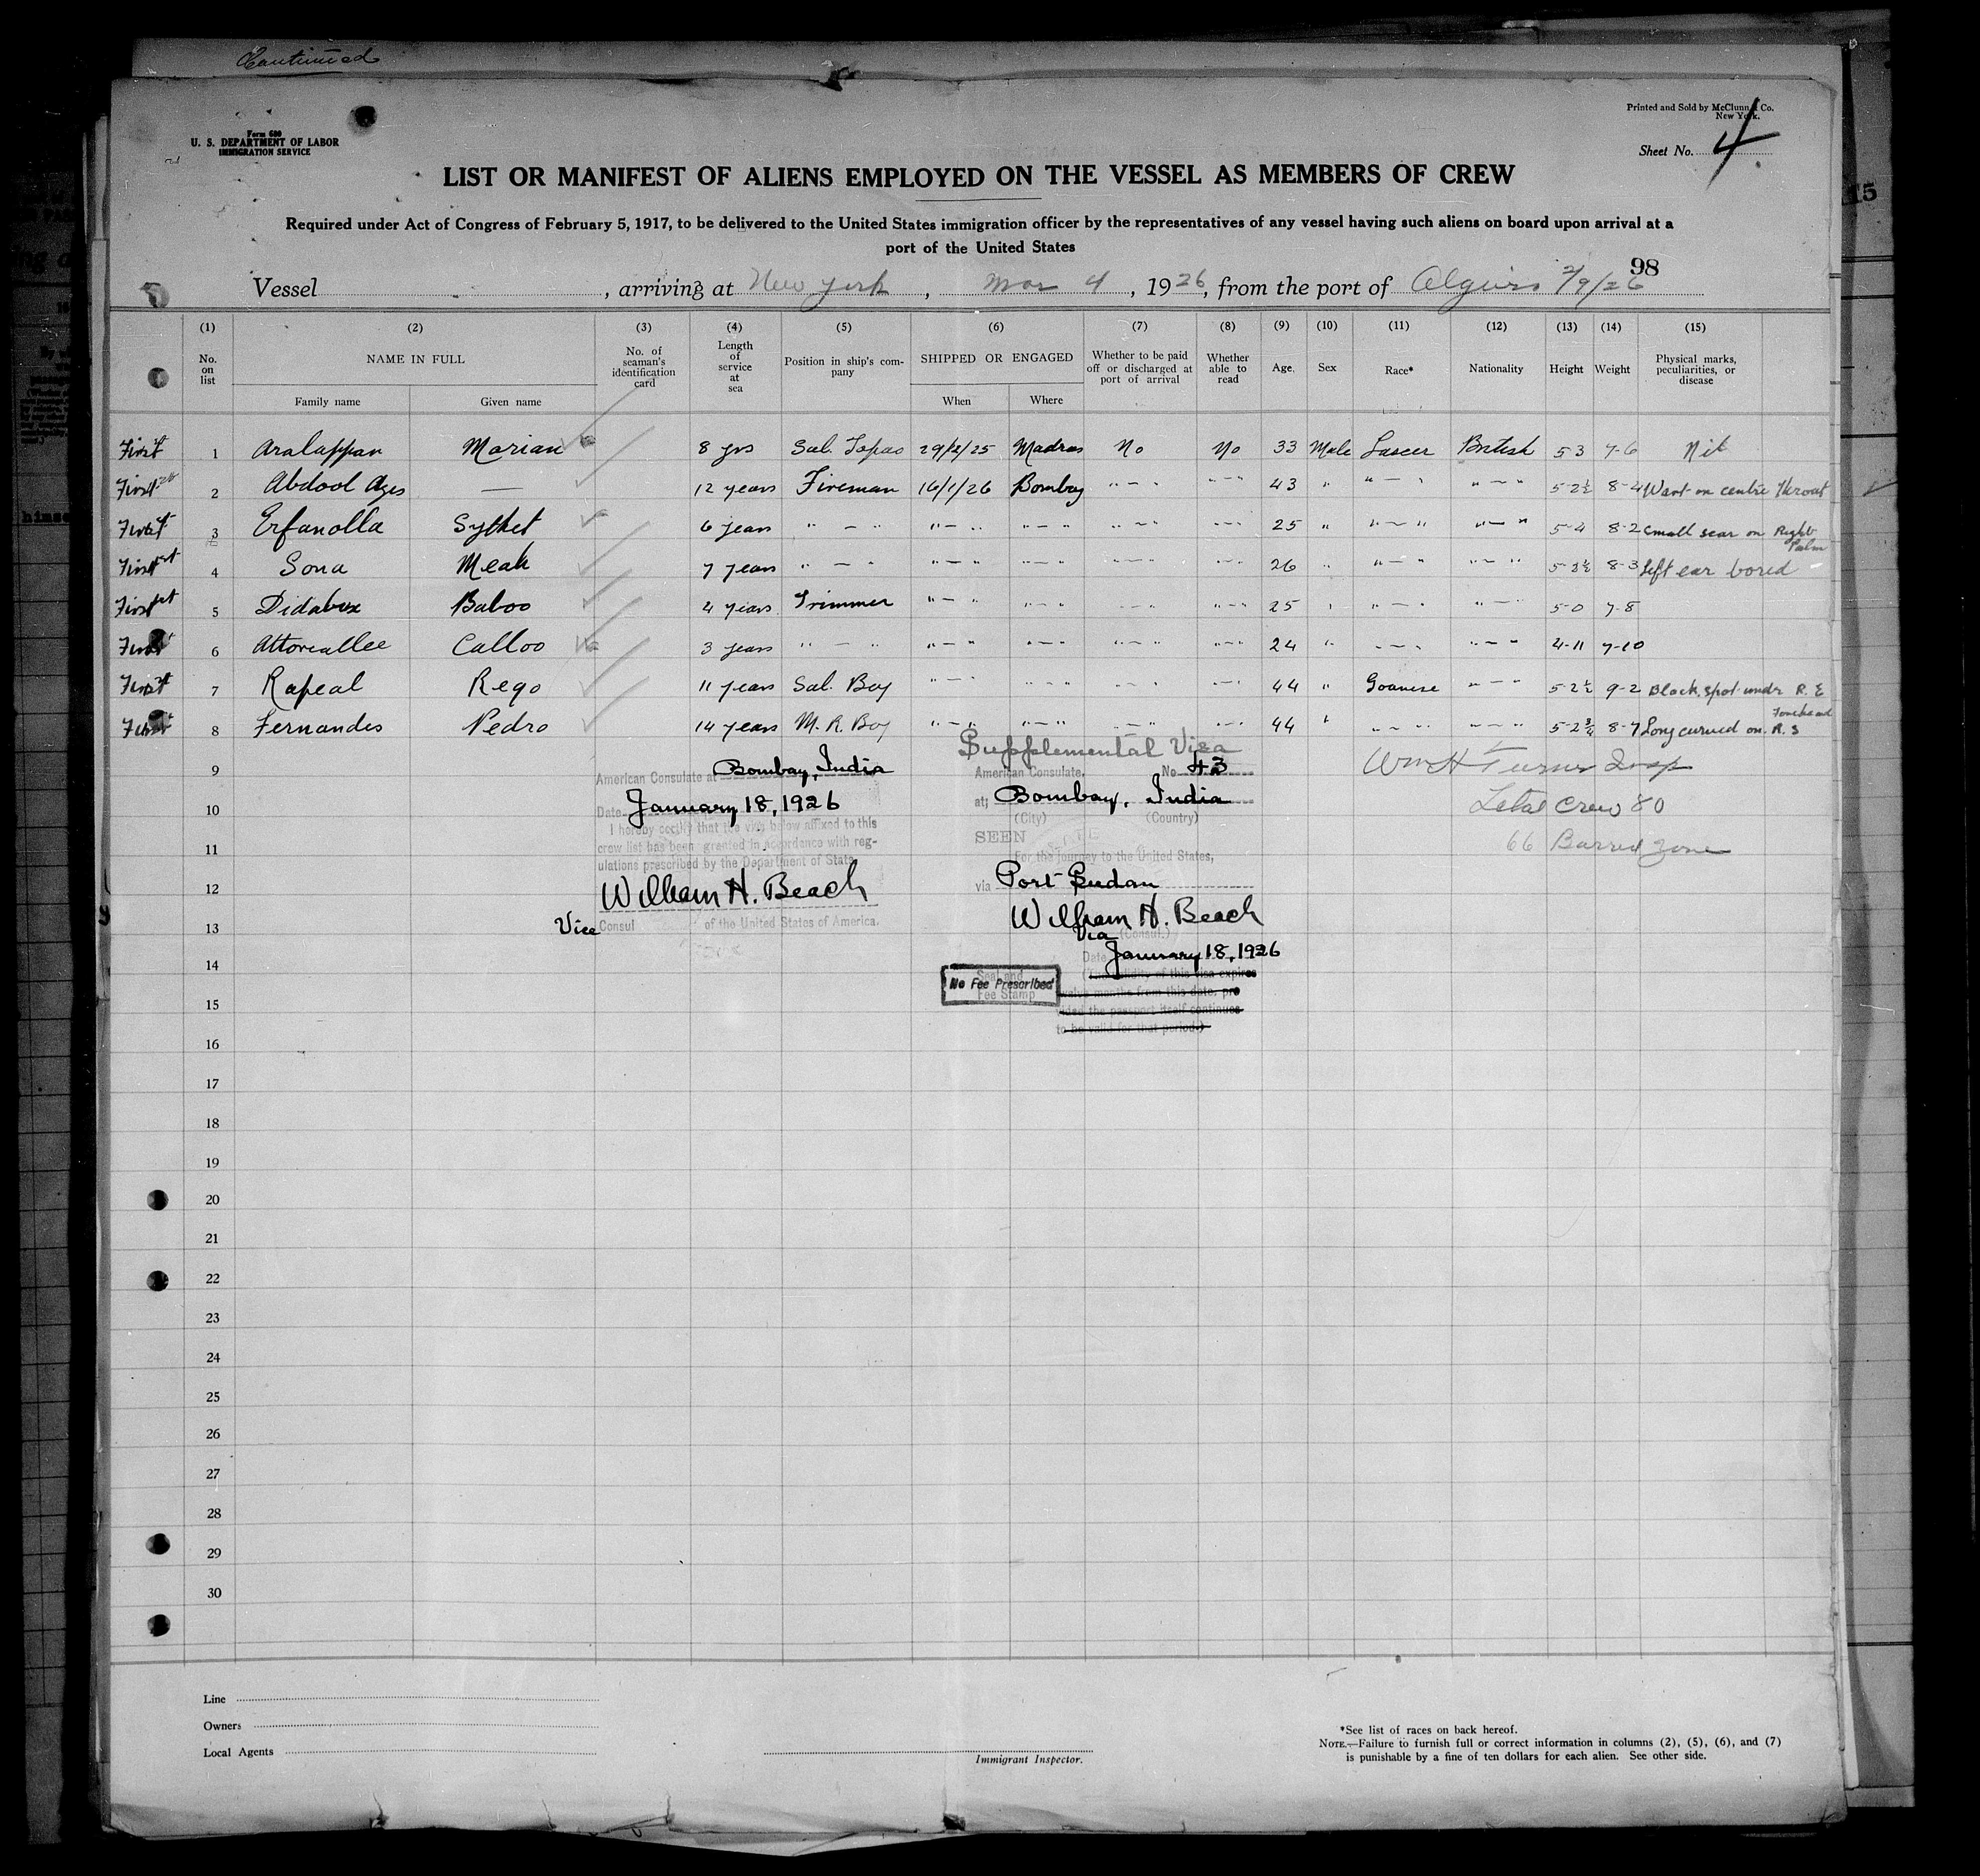 Continued
Form 680
U. S. DEPARTMENT OF LABOR
IMMIGRATION SERVICE
Printed and Sold by McClunn & Co.
New York.
Sheet No. 4
LIST OR MANIFEST OF ALIENS EMPLOYED ON THE VESSEL AS MEMBERS OF CREW
Required under Act of Congress of February 5, 1917, to be delivered to the United States immigration officer by the representatives of any vessel having such aliens on board upon arrival at a
port of the United States
98
Vessel , arriving at New York , Mar 4 , 1926, from the port of Algiers 2/9/26
(1) (2) (3) (4) (5) (6) (7) (8) (9) (10) (11) (12) (13) (14) (15)
No. on list NAME IN FULL No. of seaman's identification card Length of service at sea Position in ship's company SHIPPED OR ENGAGED Whether to be paid off or discharged at port of arrival Whether able to read Age. Sex Race* Nationality Height Weight Physical marks, peculiarities, or disease
Family name Given name When Where
First 1 Aralappan Marian 8 yrs Sal. Topas 29/12/25 Madras No No 33 Male Lascer British 5-3 7-6 Nil
First 2 Abdool Azes — 12 years Fireman 16/1/26 Bombay " — " " — " 43 " " — " " — " 5-2½ 8-4 Wart on centre throat
First 3 Erfanolla Sythet 6 years " — " " — " " — " " — " " — " 25 " " — " " — " 5-4 8-2 Small scar on Right Palm
First 4 Sona Meah 7 years " — " " — " " — " " — " " — " 26 " " — " " — " 8-3 Left ear bored
First 5 Didabux Baboo 4 years Trimmer " — " " — " " — " " — " 25 " " — " " — " 5-0 7-8
First 6 Attorallee Calloo 3 years " — " " — " " — " " — " " — " 24 " " — " " — " 4-11 7-10
First 7 Rapeal Rego 11 years Sal. Boy " — " " — " " — " " — " 44 " Goanese " — " 5-2½ 9-2 Black spot under R. E
First 8 Fernandes Pedro 14 years M. R. Boy " — " " — " " — " " — " 44 " " — " " — " 5-2¾ 8-7 Long curved on R. S Forehead
9
10
11
12
13
14
15
16
17
18
19
20
21
22
23
24
25
26
27
28
29
30
American Consulate at Bombay, India
Date January 18, 1926
I hereby certify that the visa below affixed to this
crew list has been granted in accordance with reg-
ulations prescribed by the Department of State.
William H. Beach
Vice Consul of the United States of America.
Supplemental Visa
American Consulate. No 43
at; Bombay, India
(City) (Country)
SEEN
For the journey to the United States,
via Port Sudan
William H. Beach
Vice (Consul.)
Date January 18, 1926
(The validity of this visa expires
twelve months from this date, pro
vided the passport itself continues
to be valid for that period.)
Seal and
Fee Stamp
No Fee Prescribed
Wm H Turner Insp
Total Crew 80
66 Barred Zone
Line
Owners
Local Agents
Immigrant Inspector.
*See list of races on back hereof.
NOTE.—Failure to furnish full or correct information in columns (2), (5), (6), and (7)
is punishable by a fine of ten dollars for each alien. See other side.
15